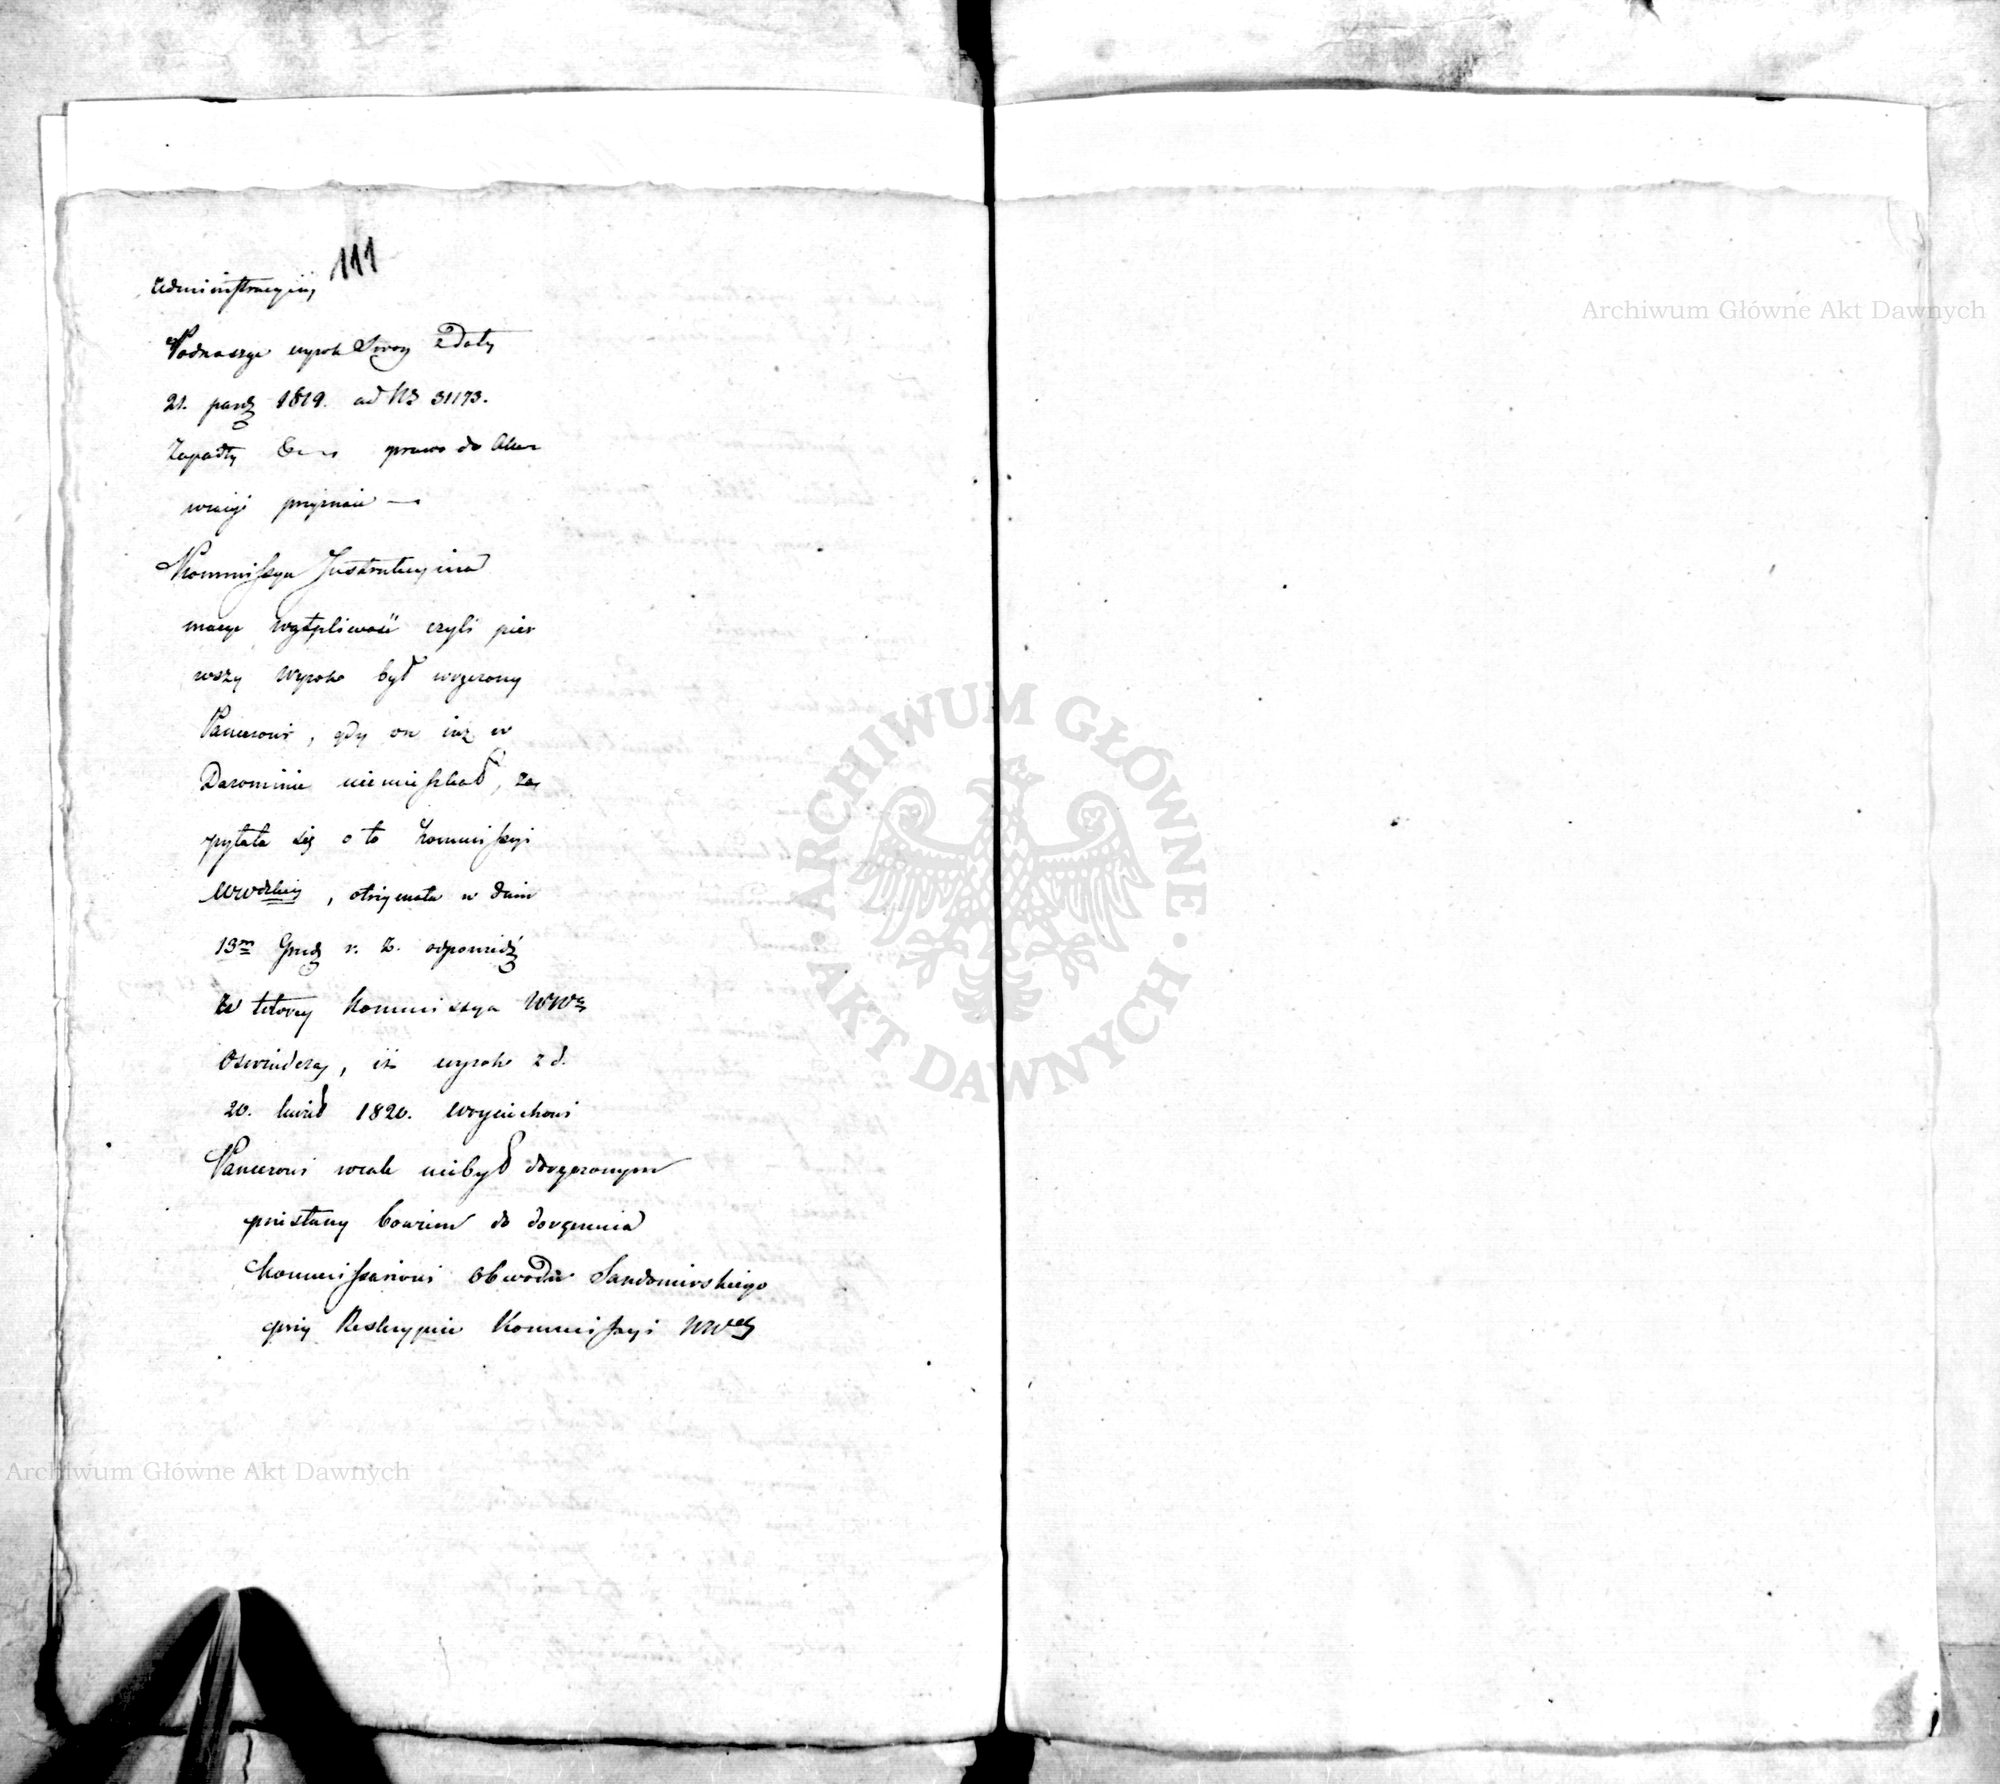 111
administracyiny
Podnaszę wyrok Swoy z Daty
21. paźdz 1819. ad No 31173.
Zapadły prawo do
przyznaie —
Kommissya Instrukcyina
maiąc wątpliwość czyli pier
wszy wyrok był wręczony
Pancerowi, gdy on iuż w
Darominie niemieszkał, za
pytała się o to Kommissyi
WWdzkiey, otrzymała w dniu
13m Grud r. b. odpowiedź
w ktorey Kommissya WWa
Oswiadcza, iż wyrok z d.
20. kwiet 1820. Woyciechowi
Pancerowi wcale niebył doręczonym
przesłany bowiem do doręczenia
Kommissarzowi Obwodu Sandomirskiego
przy Reskrypcie Kommissyi WWey
Archiwum Główne Akt Dawnych
Archiwum Główne Akt Dawnych
ARCHIWUM GŁÓWNE
AKT DAWNYCH